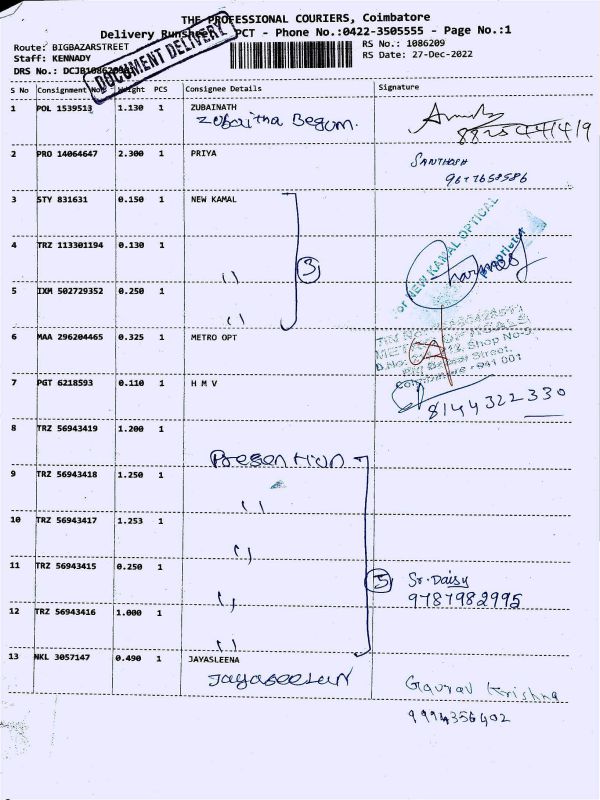 THE PROFESSIONAL COURIERS, Coimbatore
Delivery Runsheet PCT - Phone No.:0422-3505555 - Page No.:1
Route: BIGBAZARSTREET
RS No.: 1086209
Staff: KENNADY
RS Date: 27-Dec-2022
DRS No.:
DOCUMENT DELIVERY
S No Consignment No Weight PCS Consignee Details Signature
1 POL 1539513 1.130 1 ZUBAINATH
Zubaitha Begum.
8825444419
2 PRO 14064647 2.300 1 PRIYA
SANTHOSH
9677658586
3 STY 831631 0.150 1 NEW KAMAL
4 TRZ 113301194 0.130 1
" 3
For NEW KAMAL OPTICAL
Proprietor
5 IXM 502729352 0.250 1
"
6 MAA 296204465 0.325 1 METRO OPT
Shop No:5,
Big Bazaar Street,
Coimbatore - 641 001
7 PGT 6218593 0.110 1 H M V
8144322330
8 TRZ 56943419 1.200 1
Presention
9 TRZ 56943418 1.250 1
"
10 TRZ 56943417 1.253 1
"
11 TRZ 56943415 0.250 1
" 5 Sr. Daisy
9787982995
12 TRZ 56943416 1.000 1
"
13 NKL 3057147 0.490 1 JAYASLEENA
Jayaseelan
Gaurav Krishna
9994356402